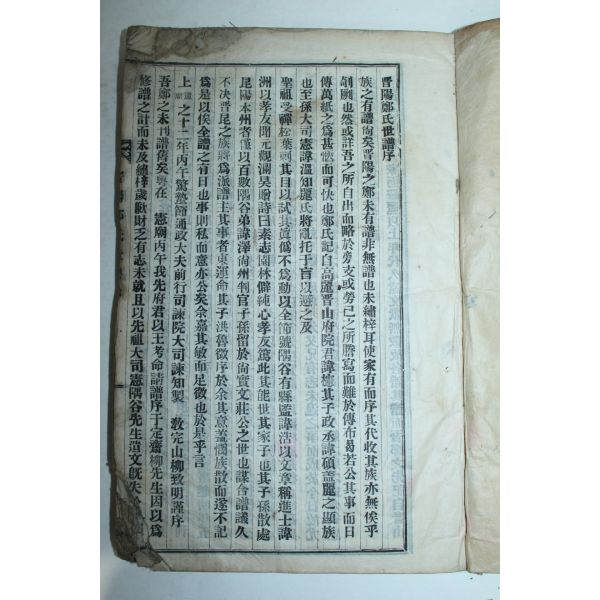 晋陽鄭氏世譜序
族之有譜尙矣晋陽之鄭未有譜非無譜也未繡梓耳使家有而序其代收其族亦無俟乎
剞劂也然或詳吾之所自出而略於旁支或勞己之所謄寫而難於傳布曷若公其事而日
傳萬紙之爲甚悏而可快也鄭氏記自高麗晋山府院君諱 其子政丞諱碩盖麗之顯族
也至孫大司憲諱溫知麗氏將亂托于盲以避之及
聖祖受禪松葉刺其目以試其眞僞不爲動以全節號隅谷有縣監諱浩以文章稱進士諱
洲以孝友聞元觀瀾昊贈詩曰素志園林僻純心孝友篤此其能世其家子也其子孫散處
昆陽本州者僅以百數隅谷弟諱澤尙州判官子孫留於尙實文莊公之世也謀合譜議久
不决晋昆之族將爲派譜主其事者東運命其子洪魯徵序於余其意盖憫族散而遂不記
爲是以俟全譜之有日也事則私而意亦公矣余嘉其敏而足徵也於是乎言
上 之十二年丙午驚蟄節通政大夫前行司諫院大司諫知製 敎完山柳致明謹序
吾鄭之未刊譜舊矣粤在 憲廟丙午我先府君以王考命請譜序于定齋柳先生因以爲
修譜之計而未及繡梓歲歉財乏有志未就且以先祖大司憲隅谷先生遺文旣失